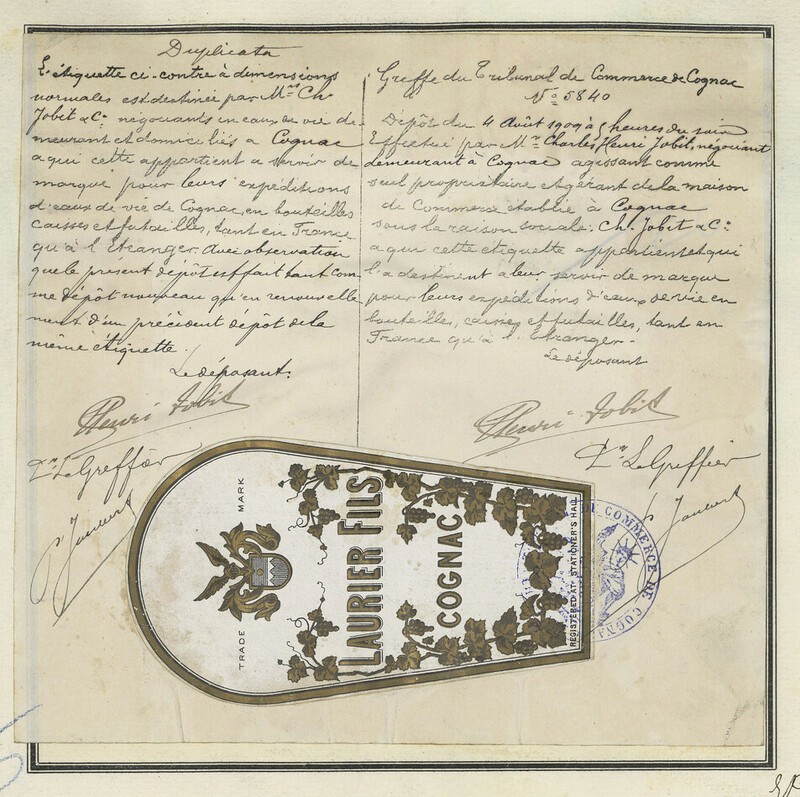 Duplicata
L'étiquette ci-contre à dimensions
normales est destinée par Mr Ch.
Jobit & Cie négociants en eaux de vie de-
meurant et domiciliés à Cognac
a qui cette appartient a servir de
marque pour leurs expéditions
d'eaux de vie de Cognac, en bouteilles
caisses et futailles, tant en France
qu'à l'Etranger avec observation
que le present dépôt est fait tant com-
me dépôt nouveau qu'en renouvelle
ment d'un précédent dépôt de la
même étiquette.
Le déposant:
Henri Jobit
Le Greffier
Greffe du Tribunal de Commerce de Cognac
No 5840
Dépôt du 4 Août 1909 à heures du soir
Effectué par Mr Charles Henri Jobit, négociant
demeurant à Cognac agissant comme
seul propriétaire et gérant de la maison
de Commerce établie à Cognac
sous la raison sociale: Ch. Jobit & Cie
a qui cette étiquette appartient et qui
l'a destinent a leur servir de marque
pour leurs expéditions d'eaux de vie en
bouteilles, caisses et futailles, tant en
France qu'à l'Etranger.-
Le déposant
Henri Jobit
Le Greffier
TRADE MARK
LAURIER FILS
COGNAC
REGISTERED AT STATIONER'S HALL
COMMERCE DE COGNAC